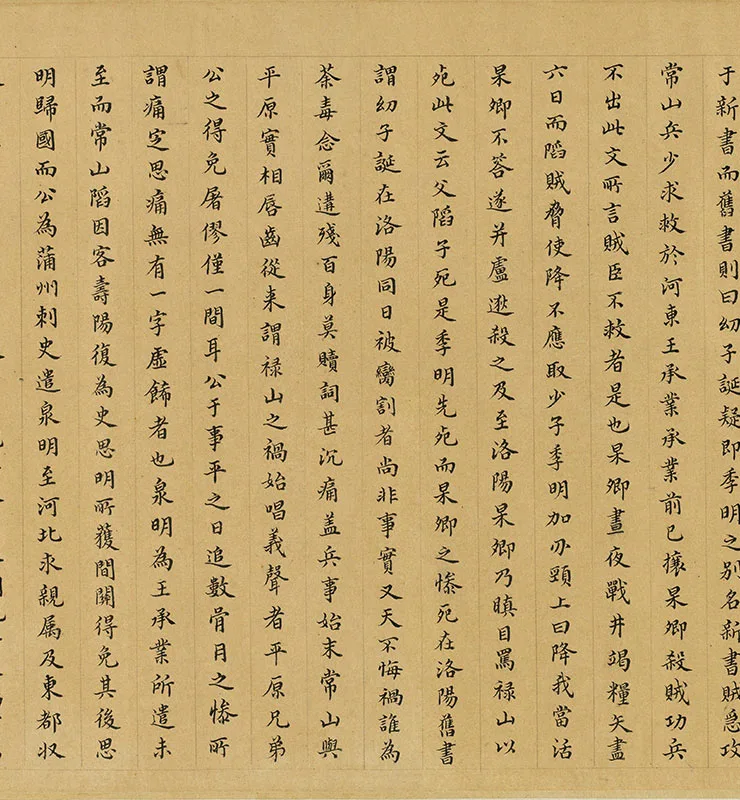 于新書而舊書則曰幼子誕疑即季明之別名新書賊急攻
常山兵少求救於河東王承業承業前已攘杲卿殺賊功兵
不出此文所言賊臣不救者是也杲卿晝夜戰井竭糧矢盡
六日而陷賊脅使降不應取少子季明加刃頸上曰降我當活
杲卿不答遂并盧逖殺之及至洛陽杲卿乃瞋目罵祿山以
死此文云父陷子死是季明先死而杲卿之慘死在洛陽舊書
謂幼子誕在洛陽同日被臠割者尚非事實又天不悔禍誰為
荼毒念爾遘殘百身莫贖詞甚沉痛蓋兵事始末常山與
平原實相唇齒從来謂祿山之禍始唱義聲者平原兄弟
公之得免屠僇僅一間耳公于事平之日追數骨月之慘所
謂痛定思痛無有一字虛餙者也泉明為王承業所遣未
至而常山陷因客壽陽復為史思明所獲間關得免其後思
明歸國而公為蒲州刺史遣泉明至河北求親属及東都収